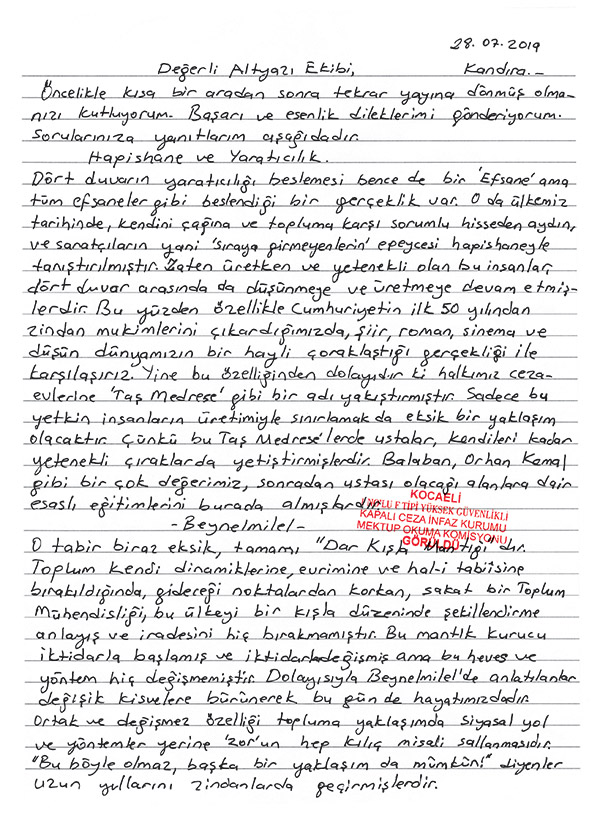 28.07.2019
Değerli Altyazı Ekibi,                Kandıra.-
Öncelikle kısa bir aradan sonra tekrar yayına dönmüş olma-
nızı kutluyorum. Başarı ve esenlik dileklerimi gönderiyorum.
Sorularınıza yanıtlarım aşağıdadır.
Hapishane ve Yaratıcılık.
Dört duvarın yaratıcılığı beslemesi bence de bir 'Efsane' ama
tüm efsaneler gibi beslendiği bir gerçeklik var. O da ülkemiz
tarihinde, kendini çağına ve topluma karşı sorumlu hisseden aydın,
ve sanatçıların yani 'sıraya girmeyenlerin' epeycesi hapishaneyle
tanıştırılmıştır. Zaten üretken ve yetenekli olan bu insanlar,
dört duvar arasında da düşünmeye ve üretmeye devam etmiş-
lerdir. Bu yüzden özellikle Cumhuriyetin ilk 50 yılından
zindan mukimlerini çıkardığımızda, şiir, roman, sinema ve
düşün dünyamızın bir hayli çoraklaştığı gerçekliği ile
karşılaşırız. Yine bu özelliğinden dolayıdır ki halkımız ceza-
evlerine 'Taş Medrese' gibi bir adı yakıştırmıştır. Sadece bu
yetkin insanların üretimiyle sınırlamak da eksik bir yaklaşım
olacaktır. Çünkü bu Taş Medrese'lerde ustalar, kendileri kadar
yetenekli çıraklarda yetiştirmişlerdir. Balaban, Orhan Kemal
gibi bir çok değerimiz, sonradan ustası olacağı alanlara dair
esaslı eğitimlerini burada almışlardır.
KOCAELİ
1 NOLU F TİPİ YÜKSEK GÜVENLİKLİ
KAPALI CEZA İNFAZ KURUMU
MEKTUP OKUMA KOMİSYONU
GÖRÜLDÜ
-Beynelmilel-
O tabir biraz eksik, tamamı "Dar Kışla Mantığı"dır.
Toplum kendi dinamiklerine, evrimine ve hal-i tabiisine
bırakıldığında, gideceği noktalardan korkan, sakat bir Toplum
Mühendisliği, bu ülkeyi bir kışla düzeninde şekillendirme
anlayış ve iradesini hiç bırakmamıştır. Bu mantık kurucu
iktidarla başlamış ve iktidarlar değişmiş ama bu heves ve
yöntem hiç değişmemiştir. Dolayısıyla Beynelmilel'de anlatılanlar
değişik kisvelere bürünerek bu gün de hayatımızdadır.
Ortak ve değişmez özelliği topluma yaklaşımda siyasal yol
ve yöntemler yerine 'zor'un hep kılıç misali sallanmasıdır.
"Bu böyle olmaz, başka bir yaklaşım da mümkün!" diyenler
uzun yıllarını zindanlarda geçirmişlerdir.